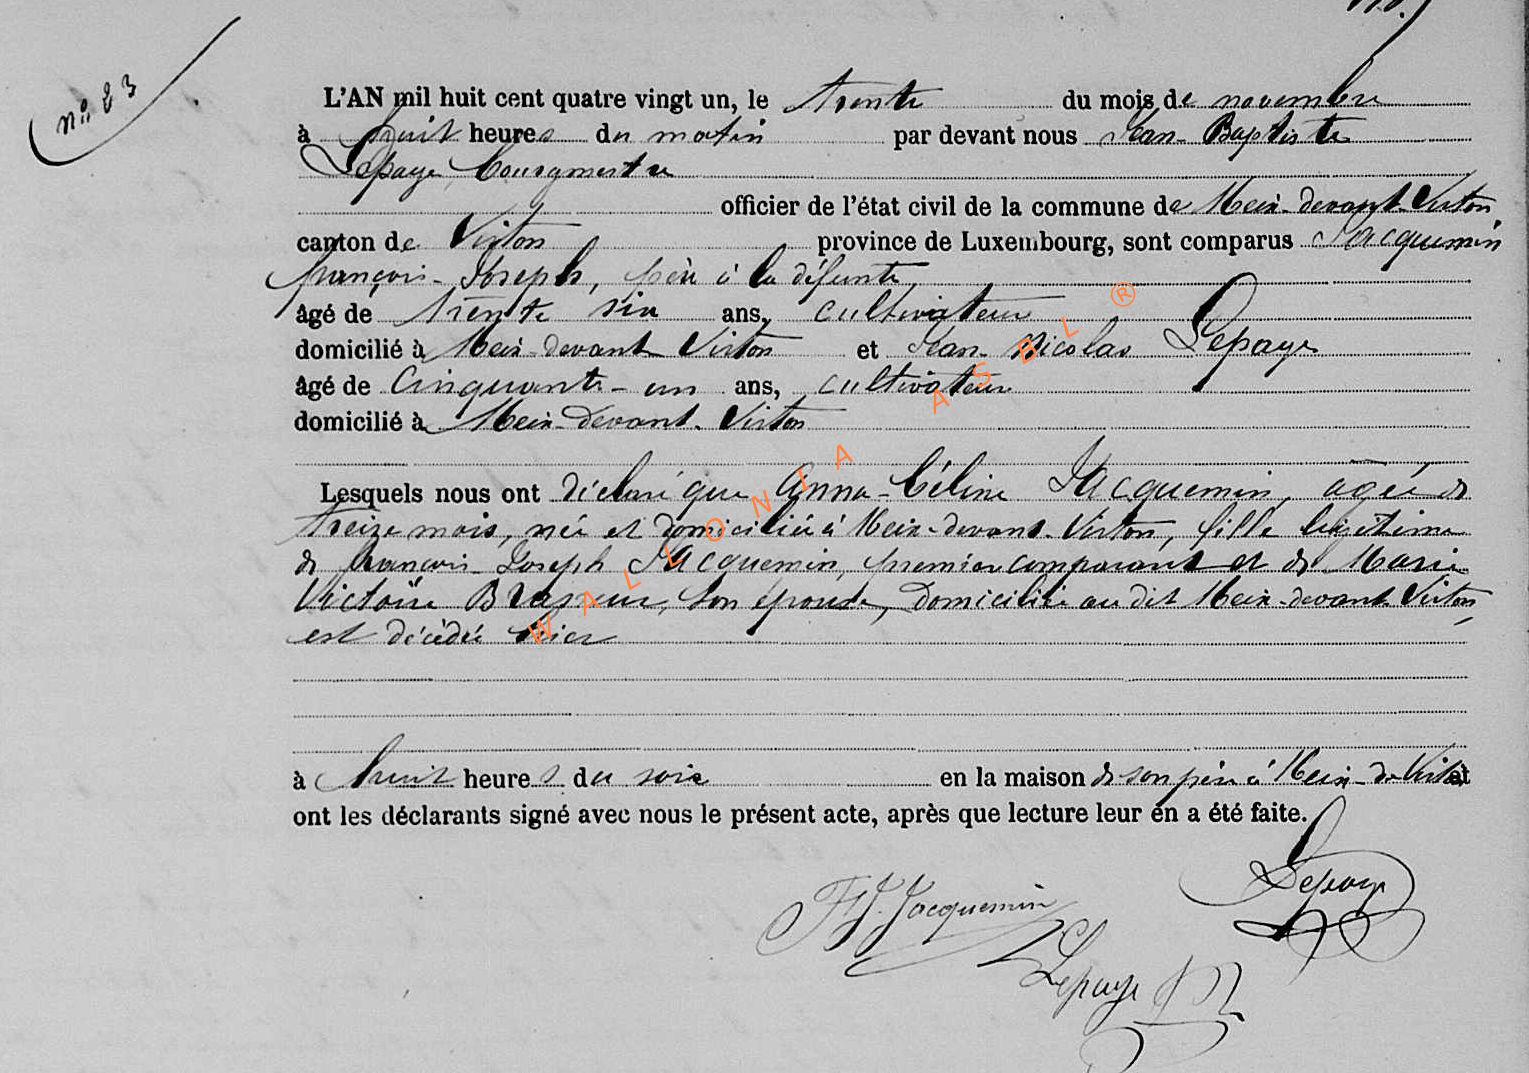 nº 23
L'AN mil huit cent quatre vingt un, le trente du mois de novembre
à huit heures du matin par devant nous Jean-Baptiste
Lepage, bourgmestre
officier de l'état civil de la commune de Meix-devant-Virton,
canton de Virton province de Luxembourg, sont comparus Jacquemin
françois-Joseph, père à la défunte,
âgé de trente six ans, cultivateur
domicilié à Meix-devant Virton et Jean-Nicolas Lepage
âgé de Cinquante-un ans, cultivateur
domicilié à Meix-devant-Virton
Lesquels nous ont déclaré que Anna-Céline Jacquemin, âgée de
treize mois, née et domiciliée à Meix-devant-Virton, fille légitime
de françois-Joseph Jacquemin, premier comparant et de Marie
Victoire Brasseur, son épouse, domiciliée au dit Meix-devant Virton,
est décédée hier
à huit heures du soir en la maison de son père à Meix-dt-Virton et
ont les déclarants signé avec nous le présent acte, après que lecture leur en a été faite.
FJ. Jacquemin
Lepage
Lepage JN
WALLONIA ASBL ®